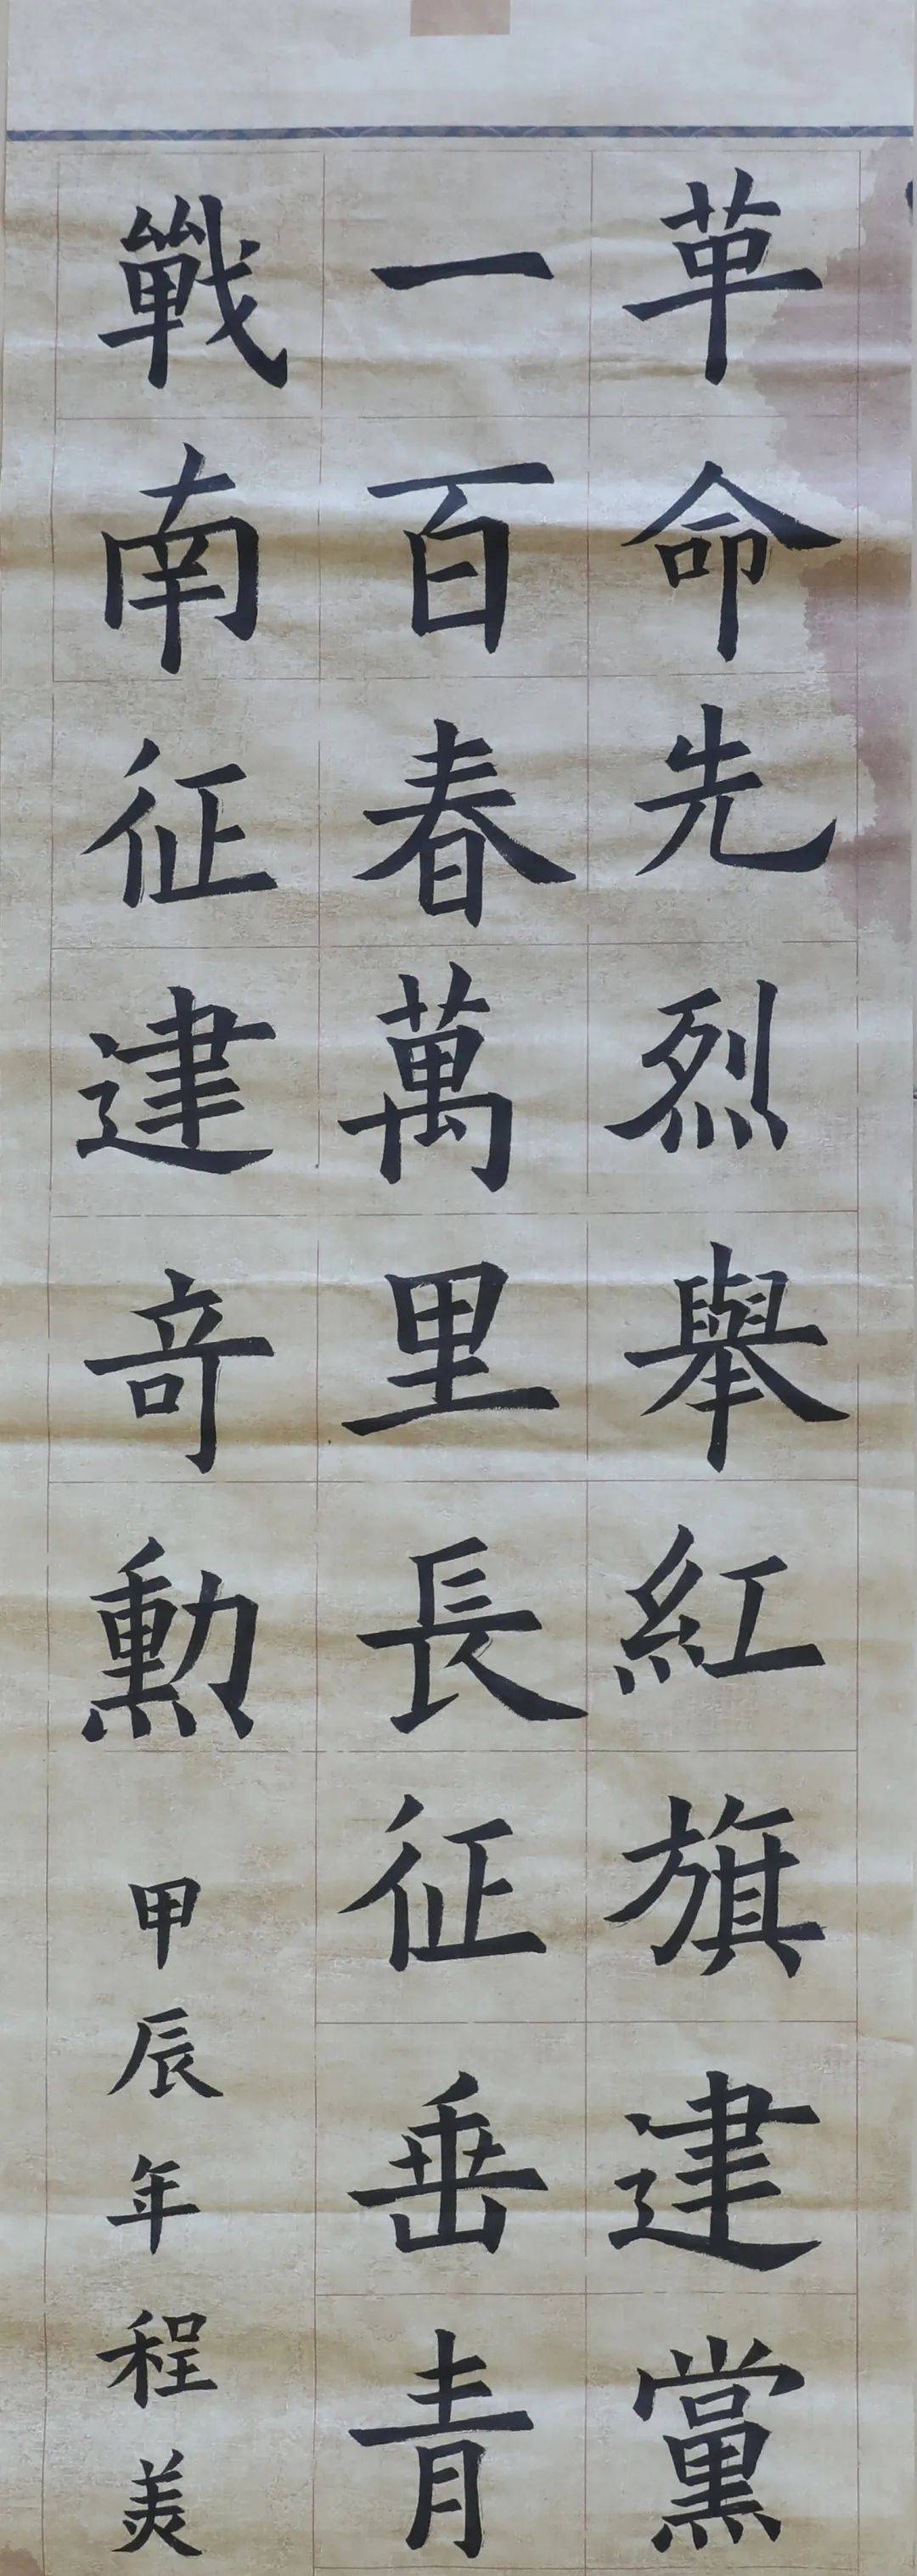 革命先烈舉紅旗建黨
一百春萬里長征垂青
戰南征建奇勳
甲辰年程美